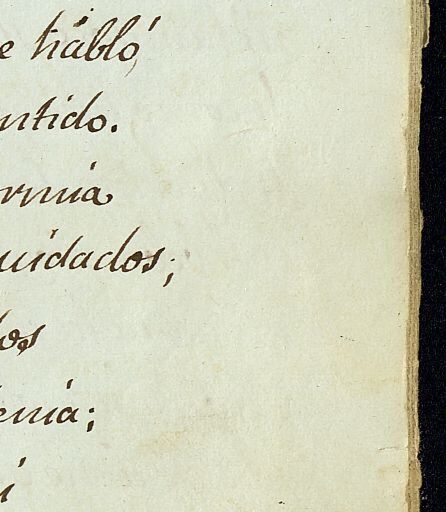 e habló,
ntido.
ormia
uidados;
los
enia;
i